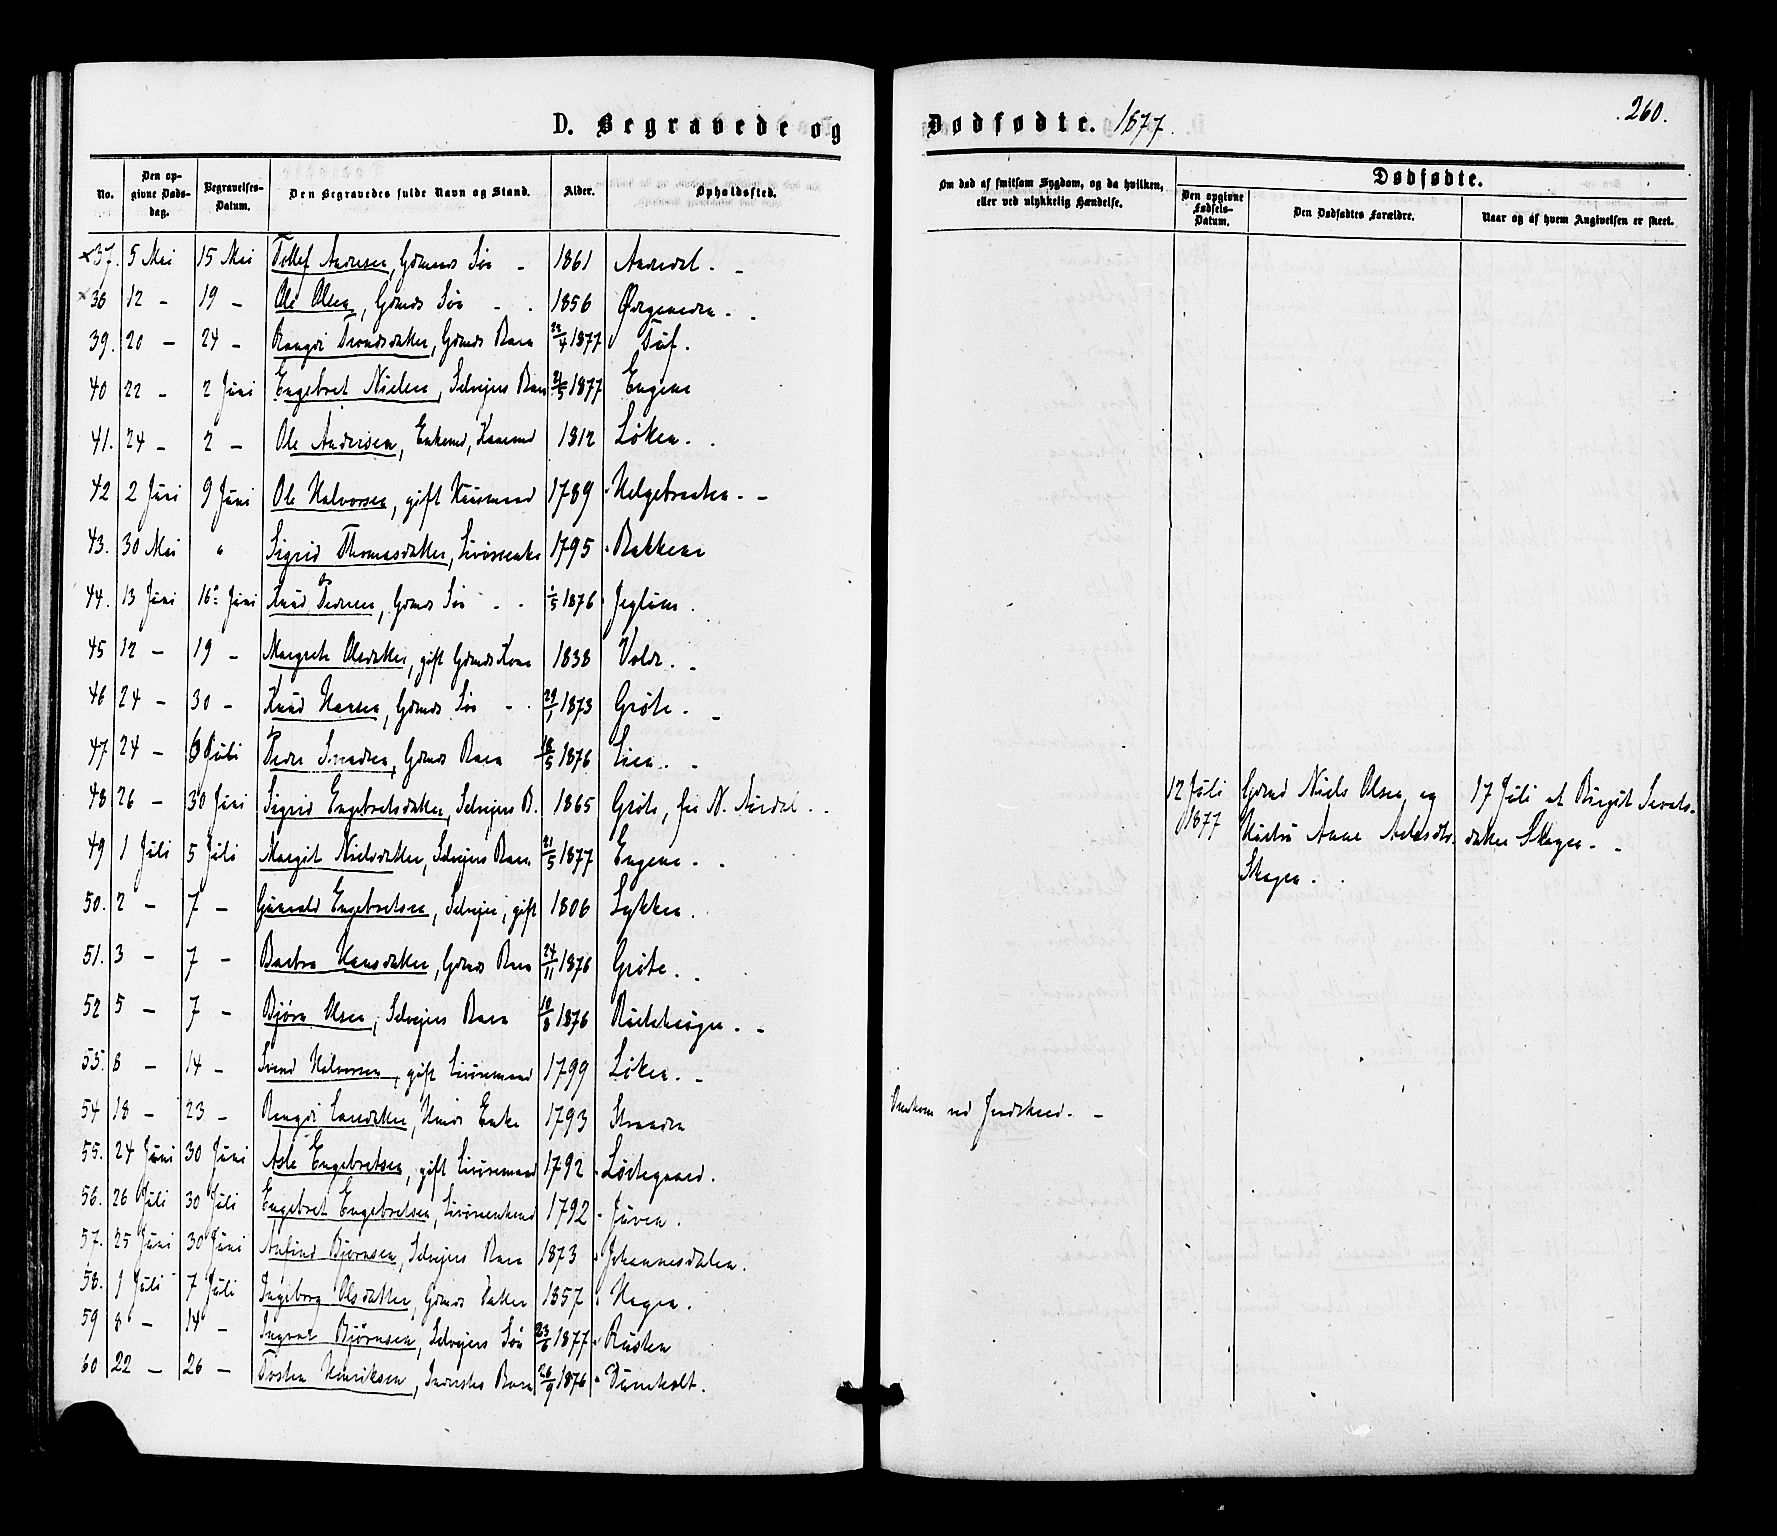 D. Begravede og Dødfødte. 1877. 260.
No.
Den opgivne Dødsdag.
Begravelses-Datum.
Den Begravedes fulde Navn og Stand.
Alder.
Opholdssted.
Om død af smitsom Sygdom, og da hvilken, eller ved ulykkelig Hændelse.
Dødfødte.
Den opgivne Fødsels-Datum.
Den Dødfødtes Forældre.
Naar og af hvem Angivelsen er skeet.
37. 5 Mai 15 Mai Tollef Andersen, Gdmands Søn - 1861
38 12 - 19 - Ole Olsen, Gdmds Søn - . 1856
39. 20 - 24 - Rangdi Trondsdatter, Gdmds Barn 1877 Tuf.
40 22 - 2 Juni Engebret Nielsen, Selveiers Barn 21/5 1877 Engene
41. 24 - 2 - Ole Andersen, Enkemd, 1812 Løken.
42 2 Juni 9 Juni Ole Halvorsen, gift Huusmand 1789 Helgebraaten. -
43. 30 Mai " Sigrid Thomasdatter, 1795 Bakkene
44. 13 Juni 16 Juni Knud Pedersen, Gdmds Søn - . 1/5 1876 Jeglum.
45 12 - 19 - Margrete Olsdatter, gift Gdmds Kone 1838 Vold. -
46 24 - 30 - Knud Hansen, Gdmds Søn - . 29/1 1873 Grøte. -
47 24 - 6 Juli Peder Svendsen, Gdmds Barn 18/5 1876 Lien. .
48 26 - 30 Juni Sigrid Engebretsdatter, Selveiers B. 1865 Grøte, fra N. Aurdal. .
49 1 Juli 5 Juli Margit Nielsdatter, Selveiers Barn 21/5 1877 Engene. .
50. 2 - 7 - Gunvald Engebretsen, Selveier, gift 1806 Lykken.
51. 3 - 7 - Barbro Hansdatter, Gdmds Barn 24/11 1876 Grøte. .
52 5 - 7 - Bjørn Olsen, Selveiers Barn 10/8 1876
53. 8 - 14 - Svend Halvorsen, gift 1799 Løken. -
54 18 - 23 - Rangdi Larsdatter, Huusmds Enke 1793 Stranden Omkom ved Ildebrand. -
55. 24 Juni 30 Juni Asle Engebretsen, gift 1792
56. 26 Juli 30 Juli Engebret Engebretsen, 1792 Juven.
57. 25 Juni 30 Juni Anfind Bjørnsen, Selveiers Barn 1873 Johannesdalen.
58. 1 Juli 7 Juli Ingeborg Olsdatter, Gdmds Datter 1857 Hagen.
59 8 - 14 - Bjørnsen, Selveiers Søn 23/6 1877 Rusten
60 22 - 26 - Tosten Henriksen, Inderstes Barn 26/9 1876
12 Juli 1877
Gdmd Niels Olsen og
Hustru Anne
Skagen. .
17 Juli af Birgit
datter Skagen. .